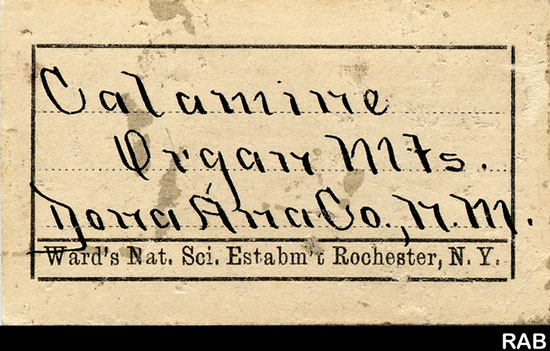 Calamine
Organ Mts.
Dona Ana Co., N.M.
Ward's Nat. Sci. Estabm't Rochester, N. Y.
RAB